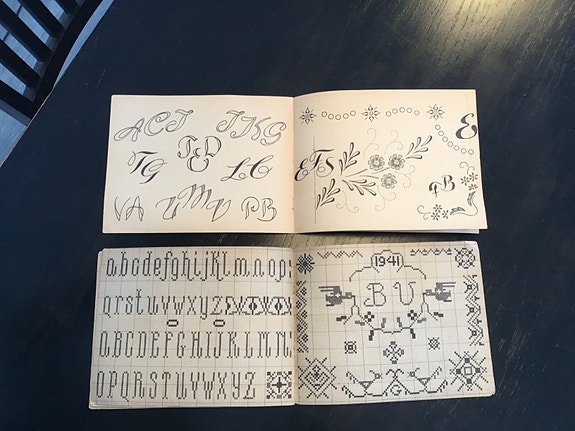 ACJ JKG
JED
TG LC
VA PB
&
EFS
PB
abcdefghijklmnop
qrstuvwxyz
ABCDEFGHIJKLMN
OPQRSTUVWXYZ
1941
BU
G